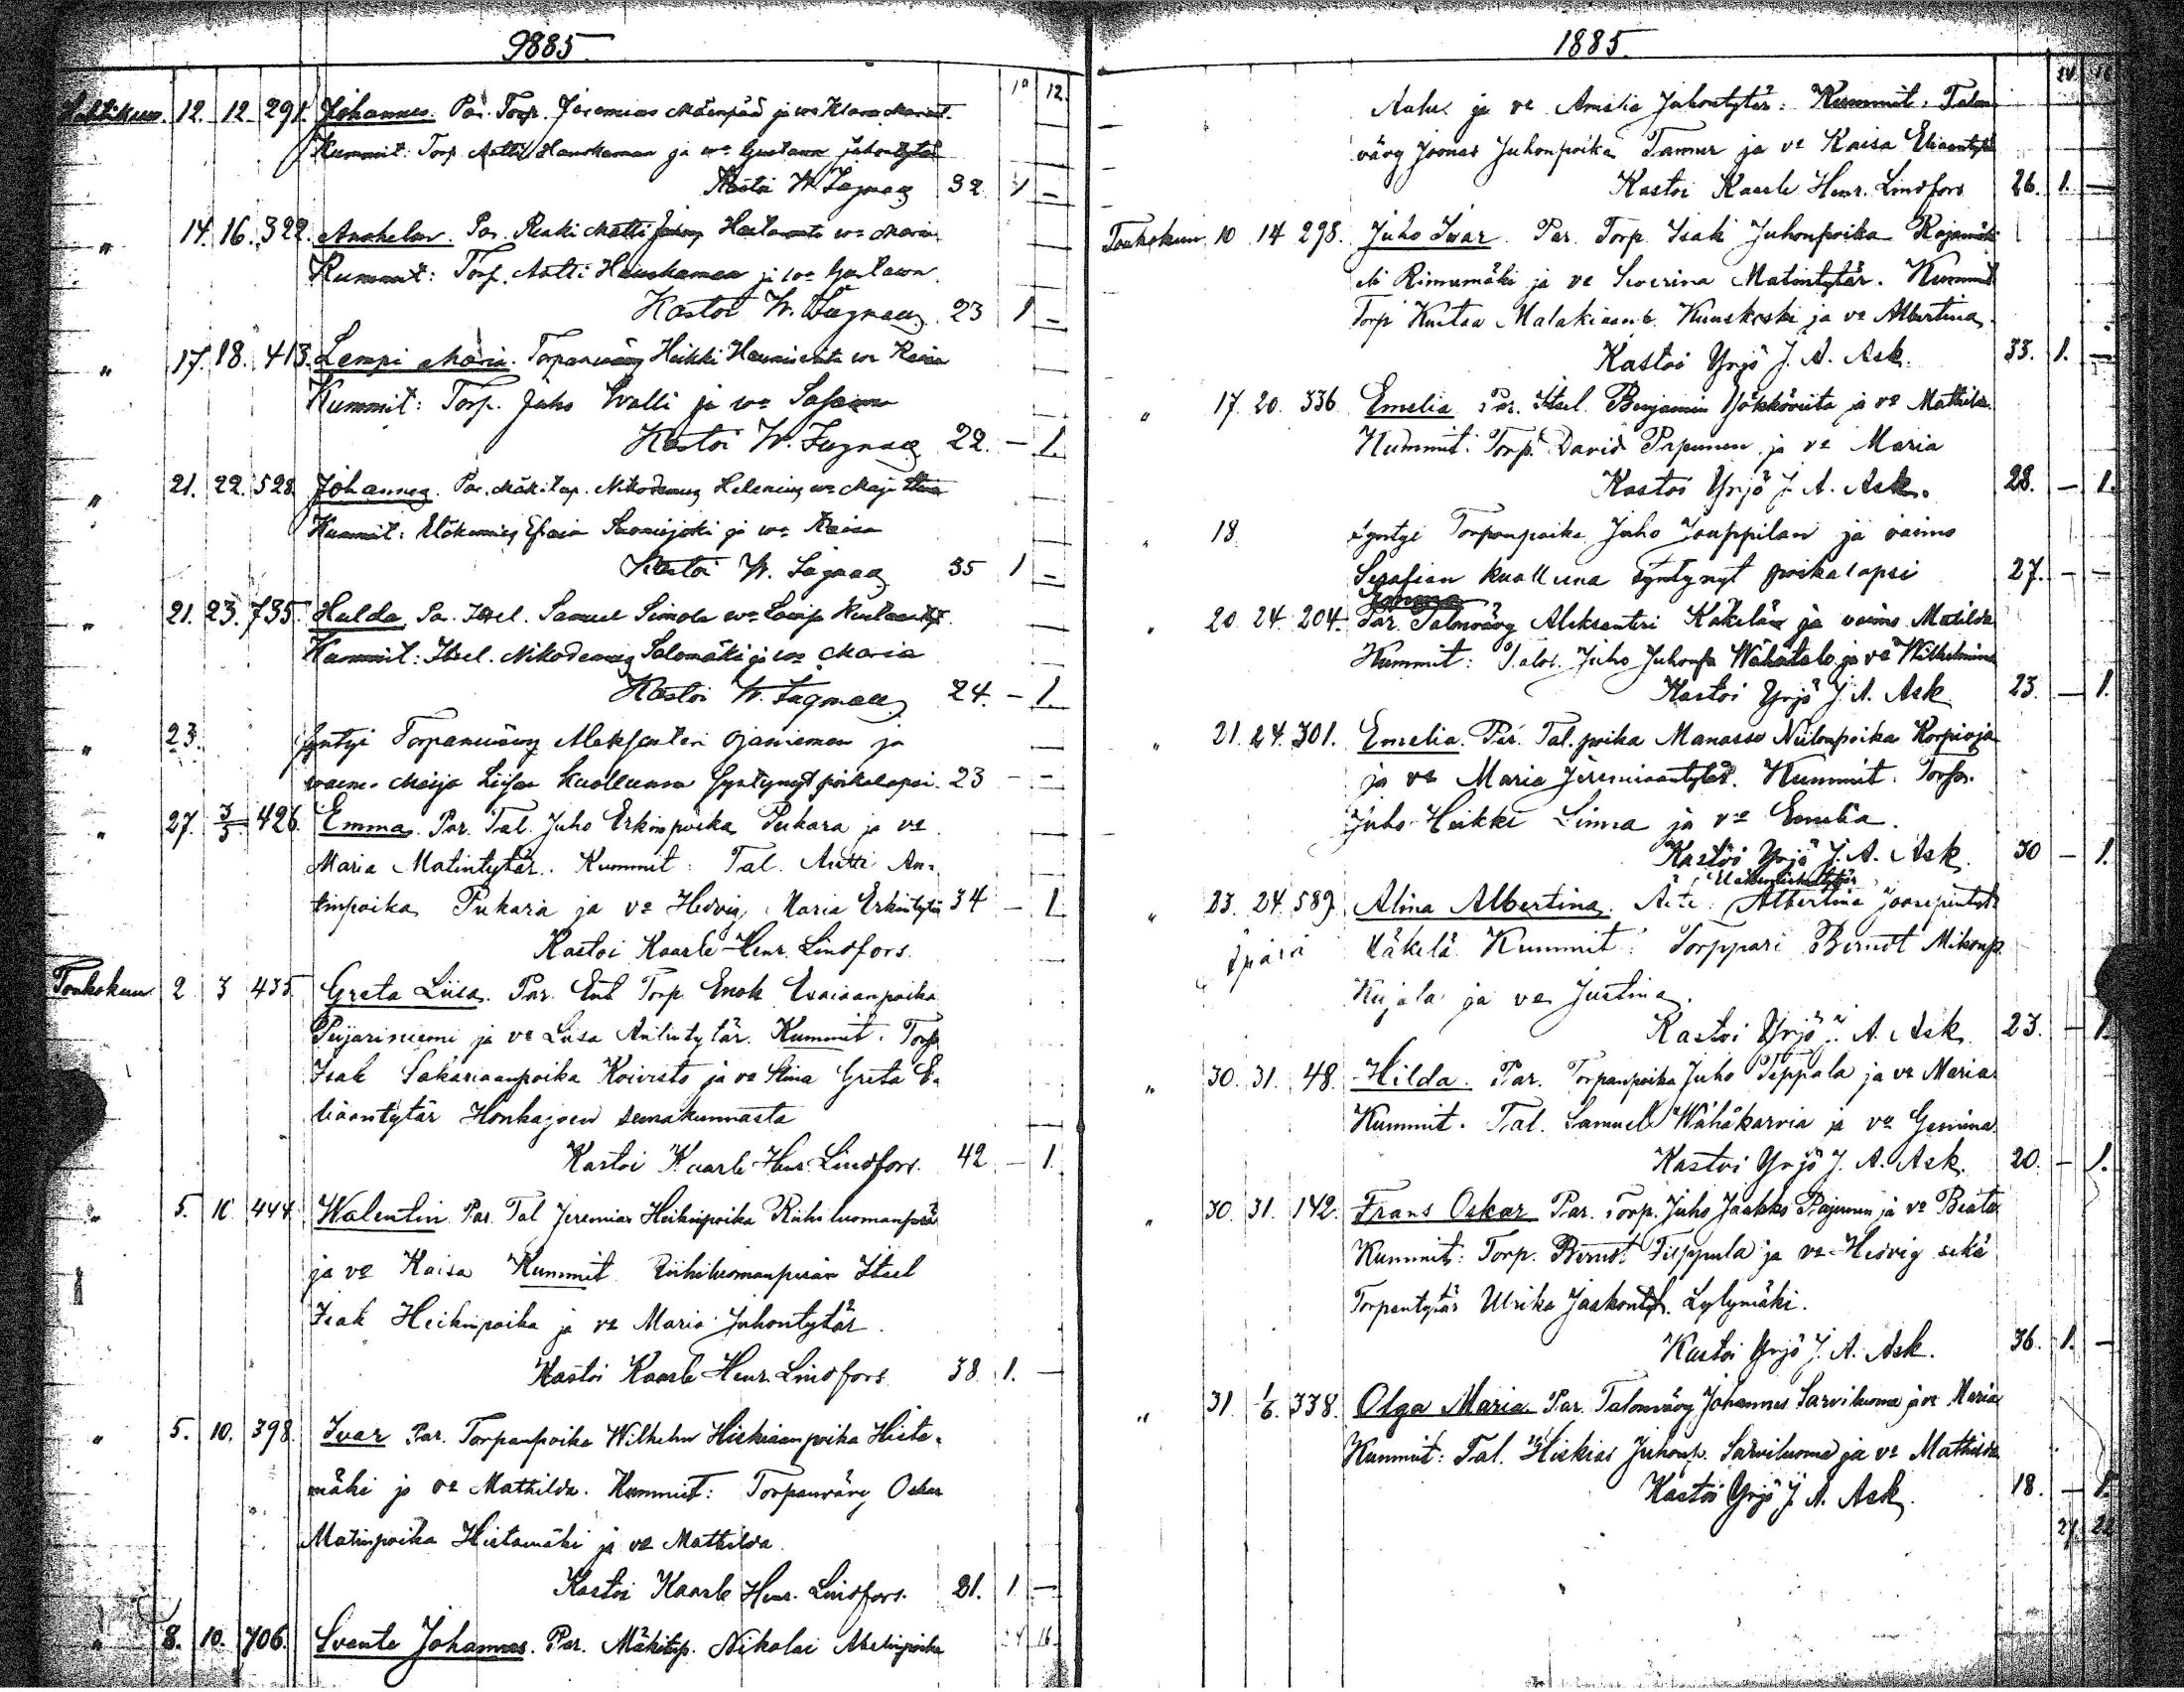 9885
10 12.
Huhtikuu. 12. 12. 291. Johannes. Par. Torp. Jeremias Mäenpää ja vo Klara
Kummit: Torp. Antti Hauskamaa ja vo Gustava Juhontytär
Kastoi W. Lagmaa 32. 1 –
" 14. 16. 322. Par. Matti vo Maria
Kummit: Torp. Antti Hauskamaa ja vo Gustava
Kastoi W. Lagmaa 23 1 –
" 17. 18. 413. Lempi Maria. Torpanväög Heikki vo
Kummit: Torp. Juho Walli ja vo
Kastoi W. Lagmaa 22. – 1.
" 21. 22. 528 Johannes. Par. Mäkitup. Nikodemus Helenius vo
Kummit: ja vo Kaisa
Kastoi W. Lagmaa 35 1 –
" 21. 23. 735. Hulda. Par. Itsel. Samuel Simola vo
Kummit: Itsel. Nikodemus Salomäki ja vo Maria
Kastoi W. Lagmaa 24. – 1.
" 23. Syntyi Torpanväög Aleksanteri Ojaniemen ja
Maija Liisan kuolleena syntynyt poikalapsi. 23 – –
" 27. 3/5 426. Emma. Par. Tal. Juho Erkinpoika Pukara ja vo
Maria Matintytär. Kummit: Tal. Antti An-
tinpoika Pukara ja vo Hedvig Maria Erkintytär 34 – 1
Kastoi Kaarle Henr. Lindfors.
Toukokuu 2 3 435 Greta Liisa. Par. Torp Enok Esaiaanpoika
Peijariniemi ja vo Liisa Antintytär. Kummit: Torp
Isak Sakariaanpoika Koivisto ja vo Stina Greta E-
liaantytär Honkajoen seurakunnasta
Kastoi Kaarle Henr. Lindfors. 42 – 1.
" 5. 10 444 Walentin Par. Tal Jeremias Heikinpoika Riihiluomanperä
ja vo Kaisa Kummit Riihiluomanperän Itsel
Isak Heikinpoika ja vo Maria Juhontytär.
Kastoi Kaarle Henr. Lindfors 38 1. –
" 5. 10. 398. Ivar Par. Torpanpoika Wilhelm Hiskiaanpoika Hieta-
mäki ja vo Mathilda. Kummit: Torpanväög Oskar
Matinpoika Hietamäki ja vo Mathilda.
Kastoi Kaarle Henr. Lindfors. 21. 1 –
" 8. 10. 706. Svante Johannes. Par. Mäkitup. Nikolai Abelinpoika
14 16
1885.
14 16
ja vo Amalia Juhontytär: Kummit: Talon
vävy Joonas Juhonpoika Tanner ja vo Kaisa Eliaantytär
Kastoi Kaarle Henr. Lindfors 26. 1. –
Toukokuu 10 14 298. Juho Ivar. Par. Torp. Isak Juhonpoika Kojamäki
eli Rinnemäki ja vo Severina Matintytär. Kummit
Torp Kustaa Malakiaanp. Kuuskoski ja vo Albertina.
Kastoi Yrjö J. A. Ask. 33. 1. –
" 17. 20. 336 Emelia Par. Itsel. Benjamin Yökköriita ja vo Mathilda.
Kummit: Torp. David Pepunen ja vo Maria
Kastoi Yrjö J. A. Ask. 28. – 1.
" 18 Syntyi Torpanpoika Juho Jouppilan ja vaimo
Serafian kuolleena syntynyt poikalapsi 27. – –
" 20 24. 204. Par. Talonvävy Aleksanteri Käkelän ja vaimo Matilda
Kummit: Talol. Juho Juhonp Wähätalo ja vo Wilhelmina
Kastoi Yrjö J. A. Ask 23. – 1.
" 21. 24. 301. Emelia. Par. Tal. poika Manasse Niilonpoika Korpioja
ja vo Maria Jeremiaantytär. Kummit. Torp.
Juho Heikki Linna ja vo Emelia.
Kastoi Yrjö J. A. Ask. 30 – 1.
" 23. 24. 589. Alina Albertina. Äiti: Albertina Joosepintyt.
Äpärä Käkelä Kummit: Torppari Berndt Mikonp.
Kujala ja vo Justina.
Kastoi Yrjö J. A. Ask. 23. – 1.
" 30. 31. 48. Hilda. Par. Torpanpoika Juho Teppala ja vo Maria
Kummit. Tal. Samuel Wähäkarvia ja vo Gemina.
Kastoi Yrjö J. A. Ask. 20. – 1.
" 30. 31. 142. Frans Oskar Par. Torp. Juho Jaakko Pajunen ja vo Beata
Kummit: Torp. Berndt Tieppula ja vo Hedvig sekä
Torpantytär Ulrika Jaakontyt. Lylymäki.
Kastoi Yrjö J. A. Ask. 36. 1. –
" 31. 1/6. 338. Olga Maria Par. Talonvävy Johannes Sarviluoma ja vo Maria
Kummit: Tal. Hiskias Juhonp. Sarviluoma ja vo Mathilda
Kastoi Yrjö J. A. Ask. 18. – 1.
27 22